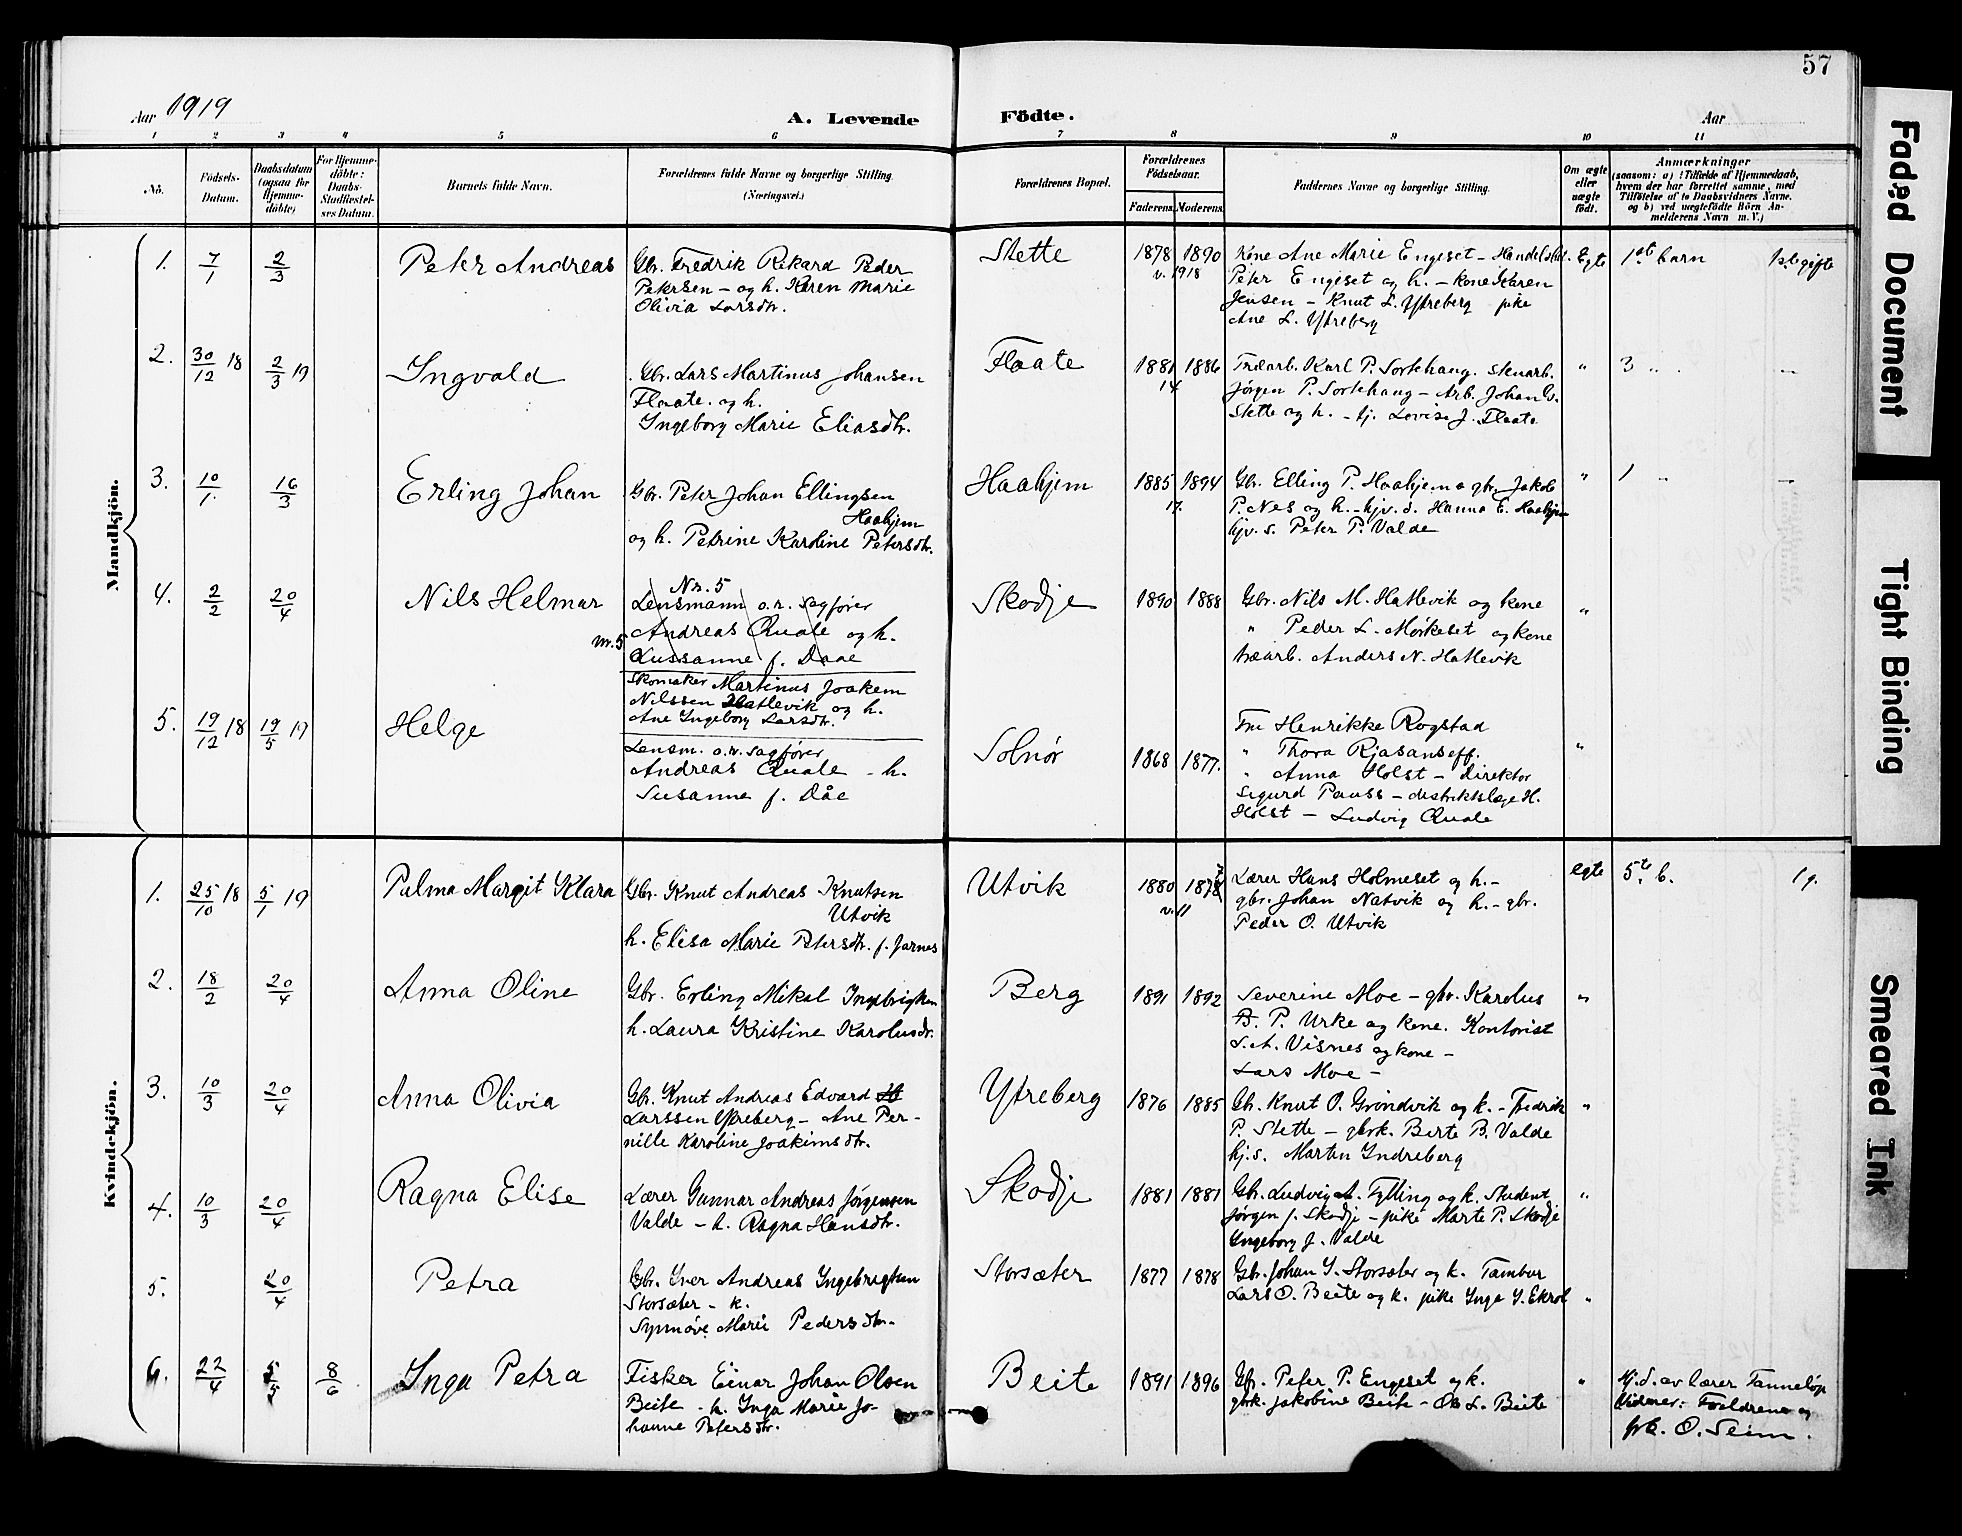 57
Aar 1919
A. Levende Födte.
Aar
1 2 3 4 5 6 7 8 9 10 11
No.
Födsels-Datum.
Daabsdatum (ogsaa for Hjemme-döbte)
For Hjemme-döbte: Daabs-Stadfæstel-ses Datum.
Barnets fulde Navn.
Forældrenes fulde Navne og borgerlige Stilling. (Næringsvei.)
Forældrenes Bopæl.
Forældrenes Födselsaar.
Faderens. Moderens.
Faddernes Navne og borgerlige Stilling.
Om ægte eller uægte födt.
Anmærkninger
(saasom: a) i Tilfælde af Hjemmedaab,
hvem der har forrettet samme, med
Tilföielse af to Daabsvidners Navne.
og b) ved uægtefödte Börn An-
melderens Navn m. V.)
Mandkjön.
1. 7/1 2/3 Peter Andreas
Gbr. Fredrik Rikard Peder
Petersen – og h. Karen Marie
Olivia Larsdtr.
Stette 1878 1890
v. 1918
Kone Ane Marie Engeset – Handelsbet.
Peter Engeset og h. – kone Karen
Jensen – Knut L. Ytreberg pike
Ane L. Ytreberg
Egte 1ste barn 1ste gifte
2. 30/12 18 2/3 19 Ingvald
Gbr. Lars Martinus Johansen
Flaate. og h.
Ingeborg Marie Eliasdtr.
Flaate 1881 1886
14
Træarb. Karl P. Sortehaug. Stenarb.
Jørgen P. Sortehaug – Arb. Johan
Stette og h. – tj. Lovise J. Flaate
" 3 " –
3. 10/1 16/3 Erling Johan
Gbr. Peter Johan Ellingsen
Haahjem
og h. Petrine Karoline Petersdtr.
Haahjem 1885 1894
17.
Gbr. Elling P. Haahjem o gbr. Jakob
P. Nes og h. – hjv. d. Hanna E. Haahjem
hjv. s. Peter P. Valde
" 1 " –
4. 2/2 20/4 Nils Helmar
Nr. 5
Lensmann o.r. sagfører
Andreas Quale og h.
Sussanne f. Daae
nr. 5
Skomaker Martinus Joakem
Nilssen Hatlevik og h.
Ane Ingeborg Larsdtr.
Skodje 1890 1888
Gbr. Nils M. Hatlevik og kone
" Peder L. Mørkeset og kone
træarb. Anders N. Hatlevik
"
5. 19/12 18 19/5 19 Helge
Lensm. o.r. sagfører
Andreas Quale – h.
Susanne f. Dåe
Solnør 1868 1877.
Fru Henrikke Rogstad
" Thora Rjasanseff.
" Anna Holst – direktør
Sigurd Pauss – distriktslæge H.
Holst – Ludvig Quale
"
Kvindekjön.
1. 25/10 18 5/1 19 Palma Margit Klara
Gbr. Knut Andreas Knutsen
Utvik
h. Elisa Marie Petersdtr. f. Jarnes
Utvik 1880 1878
v. 11
Lærer Hans Holmeset og h. –
gbr. Johan Natvik og h. – gbr.
Peder O. Utvik
egte 5te b. 1 g.
2. 18/2 20/4 Anna Oline
Gbr. Erling Mikal Ingebrigtsen
h. Laura Kristine Karolusdtr.
Berg 1891 1892
Severine Moe – gbr. Karolus
P. Urke og kone. Kontorist
S. A. Visnes og kone –
Lars Moe –
"
3. 10/3 20/4 Anna Olivia
Gbr. Knut Andreas Edvard
Larssen Ytreberg – Ane Per-
nille Karoline Joakimsdtr.
Ytreberg 1876 1885
Gbr. Knut O. Grøndvik og k. – Fredrik
P. Stette – gbrk. Berte B. Valde
hj. s. Martin Indreberg
"
4. 10/3 20/4 Ragna Elise
Lærer Gunnar Andreas Jørgensen
Valde – h. Ragna Hansdtr.
Skodje 1881 1881
Gbr. Ludvig A. Fylling og k. Student
Jørgen J. Skodje – pike Marte P. Skodje
Ingeborg J. Valde
"
5. 20/4 Petra
Gbr. Iver Andreas Ingebrigtsen
Storsæter – k.
Synnøve Marie Pedersdtr.
Storsæter 1877 1878
Gbr. Johan I. Storsæter og k. Tambur
Lars O. Beite og k. pike Inga I. Ekrol
"
6. 22/4 5/5 8/6 Inga Petra
Fisker Einar Johan Olsen
Beite – h. Inga Marie Jo-
hanne Petersdtr.
Beite 1891 1896
Gbr. Peter P. Engeset og k.
gbrk. Jakobine Beite – Ole L. Beite
"
Hj.d. av lærer Tanneløp
Vidner: Foreldrene og
O. Seim.
Faded Document
Tight Binding
Smeared Ink